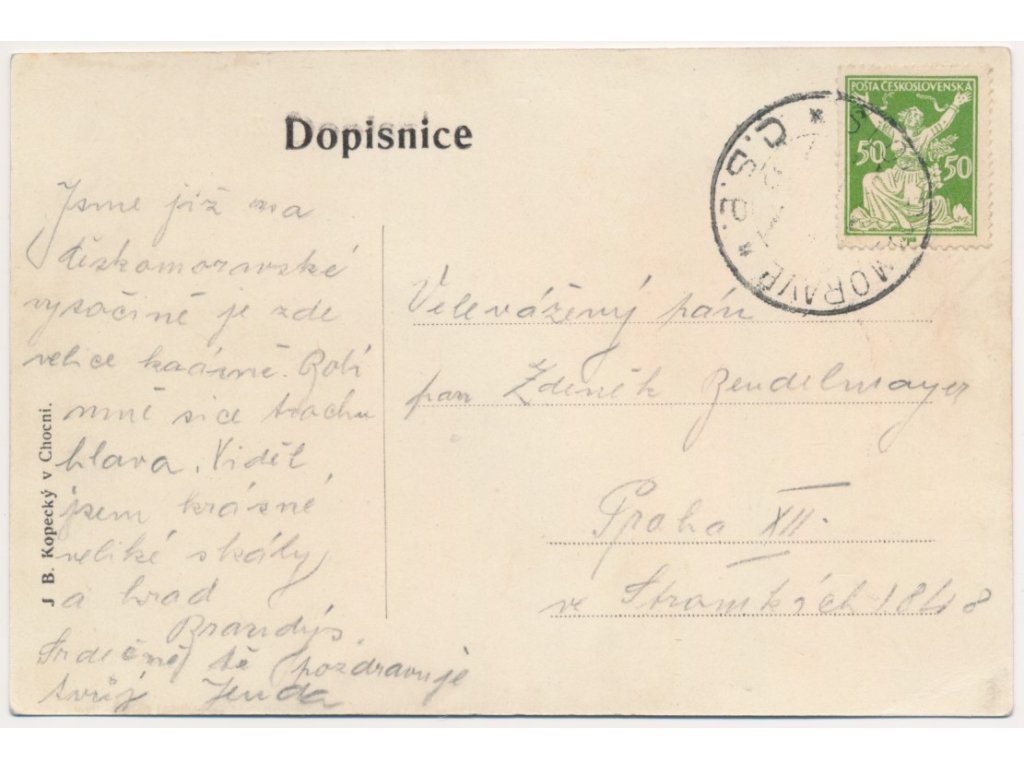 Dopisnice
POŠTA ČESKOSLOVENSKÁ
50 50
Č.S.P.
MORAVĚ
Jsme již na
českomoravské
vysočině je zde
velice krásně. Bolí
mně sice trochu
hlava. Viděl
jsem krásné
veliké skály
a hrad
Brandýs.
Srdečně tě pozdravuje
tvůj Jenda
J B. Kopecký v Chocni.
Velevážený pán
pan Zdeněk Bendelmayer
Praha XII.
ve Stromkách 1848